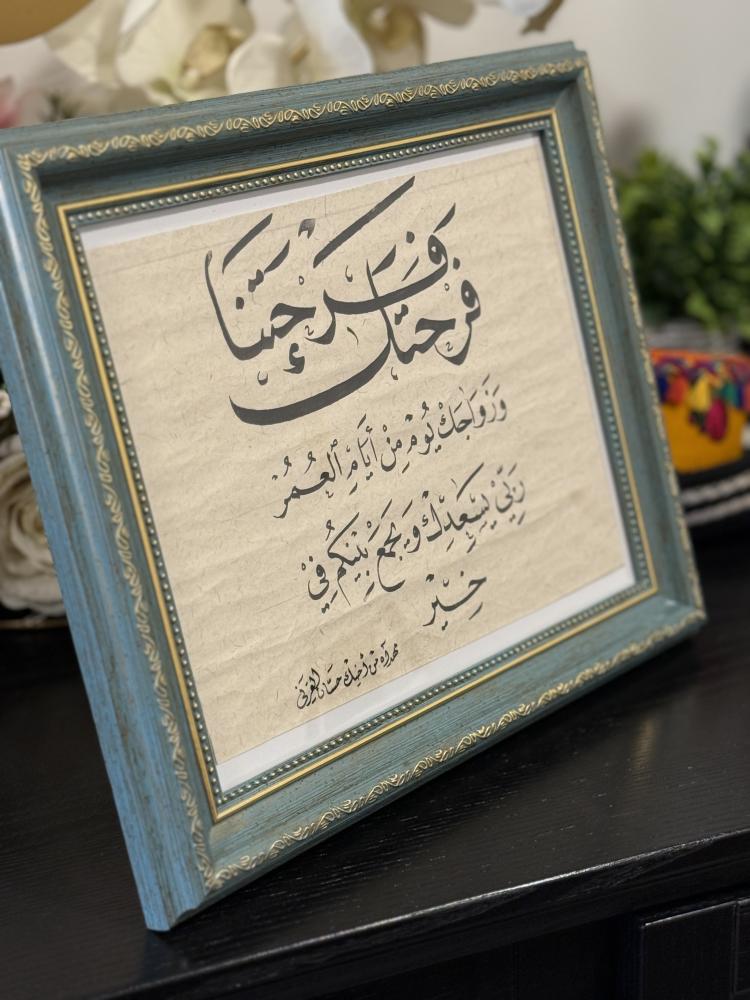 فَرحتك فَرحتنَا
وَزَوَاجك يُوْم مِنْ أيَّامِ العُمُرْ
رَبِّيْ يسْعِدِكْ وَيجْمَعْ بَيْنكُمْ فِيْ
خِيْر
مهداه من أخيك حسان